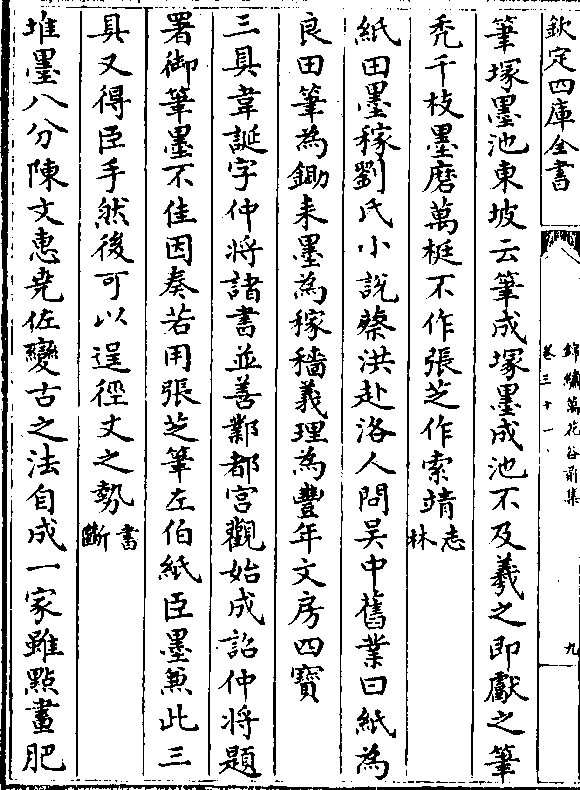 欽定四庫全書
錦繡萬花谷前集
卷三十一
九
筆塚墨池東坡云筆成塚墨成池不及羲之即獻之筆
禿千枝墨磨萬梃不作張芝作索靖志林
紙田墨稼劉氏小說蔡洪赴洛人問吴中舊業曰紙為
良田筆為鋤耒墨為稼穡義理為豐年文房四寶
三具韋誕字仲将諸書並善鄴都宫觀始成詔仲将題
署御筆墨不佳因奏若用張芝筆左伯紙臣墨兼此三
具又得臣手然後可以逞徑丈之勢書斷
堆墨八分陳文惠堯佐變古之法自成一家雖點畫肥